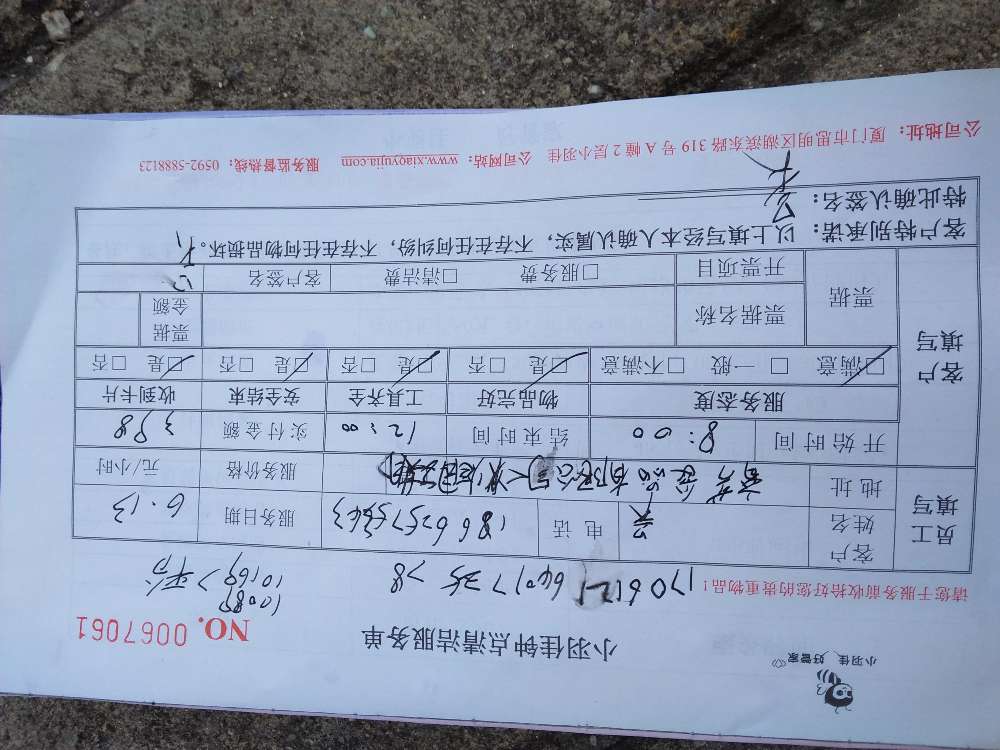 小羽佳 好管家
小羽佳钟点清洁服务单
NO. 0067061
请您于服务前收拾好您的贵重物品！
员工填写
客户姓名
吴
电话
服务日期
6.13
地址
服务价格
元/小时
开始时间
8:00
结束时间
12:00
实付金额
398
客户填写
服务态度
物品完好
工具齐全
安全结束
收到卡片
☑满意 □一般 □不满意
☑是 □否
☑是 □否
☑是 □否
☑是 □否
票据
票据名称
票据金额
开票项目
□服务费 □清洁费
客户签名
客户特别承诺：以上填写经本人确认属实，不存在任何纠纷，不存在任何物品损坏。
特此确认签名：
公司地址：厦门市思明区湖滨东路 319 号 A 幢 2 层小羽佳 公司网站：www.xiaoyujia.com 服务监督热线：0592-5888123